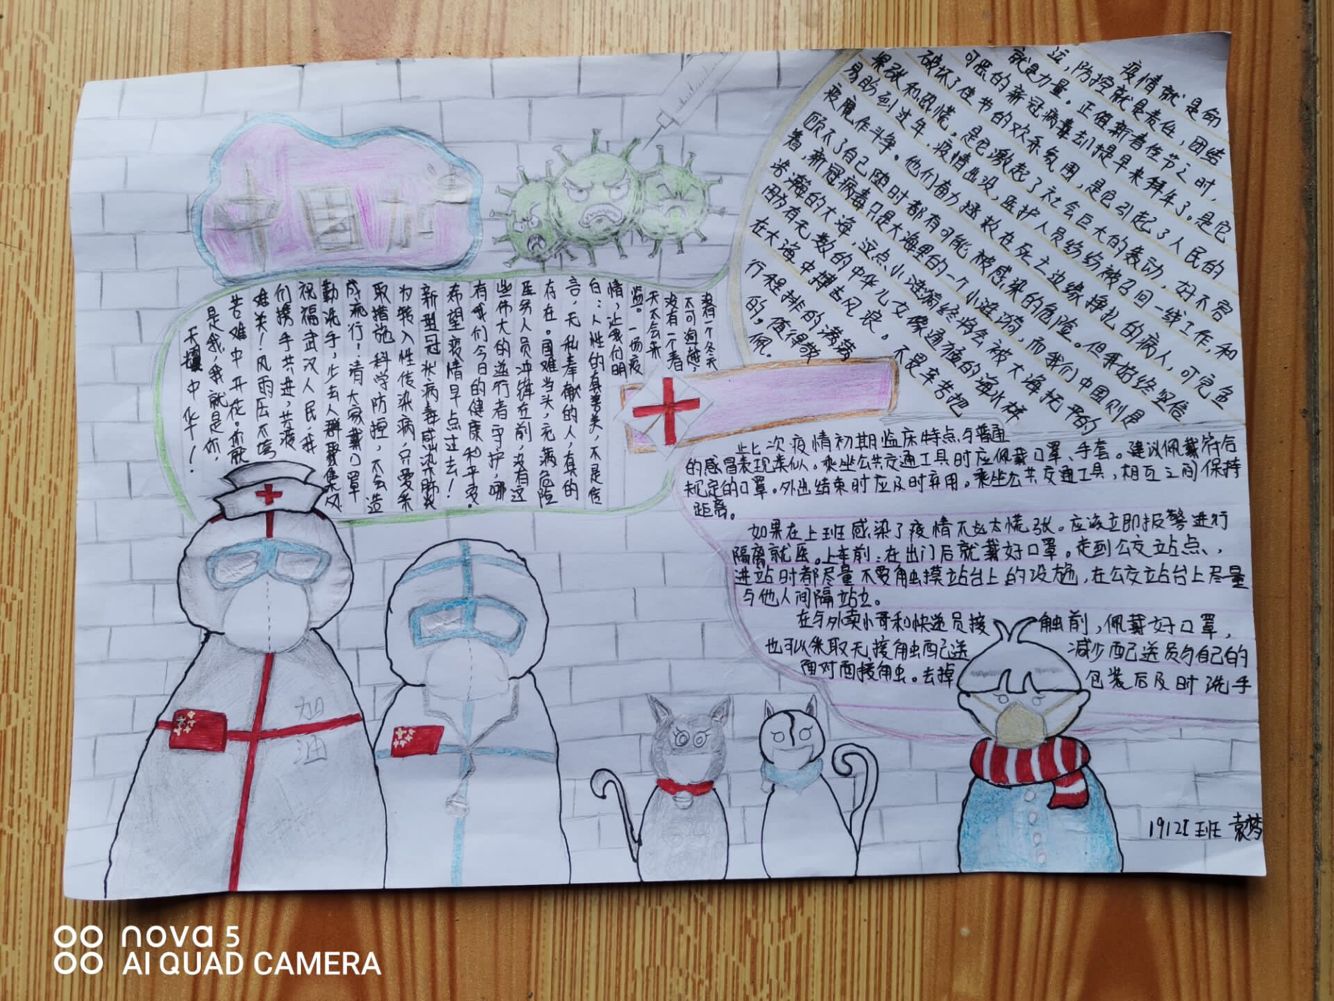 中国加油
疫情就是命
运，防控就是责任，团结
就是力量。正值新春佳节之时，
可恶的新冠病毒却提早来拜年了，是它
破坏了佳节的欢乐氛围，是它引起了人民的
紧张和恐慌。是它激起了社会巨大的轰动，好不容
易盼到过年，疫情出没，医护人员纷纷被召回一线工作，和
疫魔作斗争。他们奋力拯救在死亡边缘挣扎的病人，可完全
忽略了自己随时都有可能被感染的危险。但我始终坚信
着，新冠病毒只是大海里的一个小涟漪，而我们中国则是
浩瀚的大海，这点小涟漪终将会被大海抚平的
在大海中撑击风浪。不是辛苦把
行程排的满满
的，值得敬
佩。
若一个冬天
不可逾越，
没有一个春
天不会来
临。一场疫
情，让我们明
白：人性的真善美，不是谎
言，无私奉献的人，真的
存在。困难当头，无惧危险
医务人员冲锋在前，只有这
些伟大的逆行者守护，哪
有我们今日的健康和平安。
希望疫情早点过去！
新型冠状病毒感染肺炎
为我入性传染病，只要采
取措施，科学防控，不会造
成流行，请大家戴口罩
勤洗手，少去人群聚集处
祝福武汉人民，让我
们携手共进，共渡
难关！风雨压不垮
苦难中开花。你就
是我，我就是你，
天耀中华！
此次疫情初期临床特点与普通
的感冒表现类似。乘坐公共交通工具时应佩戴口罩、手套。建议佩戴符合
规定的口罩。外出结束时应及时弃用。乘坐公共交通工具，相互之间保持
距离。
如果在上班感染了疫情不必太慌张。应该立即报警进行
隔离就医。上车前：在出门后就戴好口罩。走到公交站点、
进站时都尽量不要触摸站台上的设施，在公交站台上尽量
与他人间隔站立。
在与外卖小哥和快递员接触前，佩戴好口罩，
也可以采取无接触配送 减少配送员与自己的
面对面接触。去掉 包装后及时洗手
加油
1912I班 袁梦
nova 5
AI QUAD CAMERA